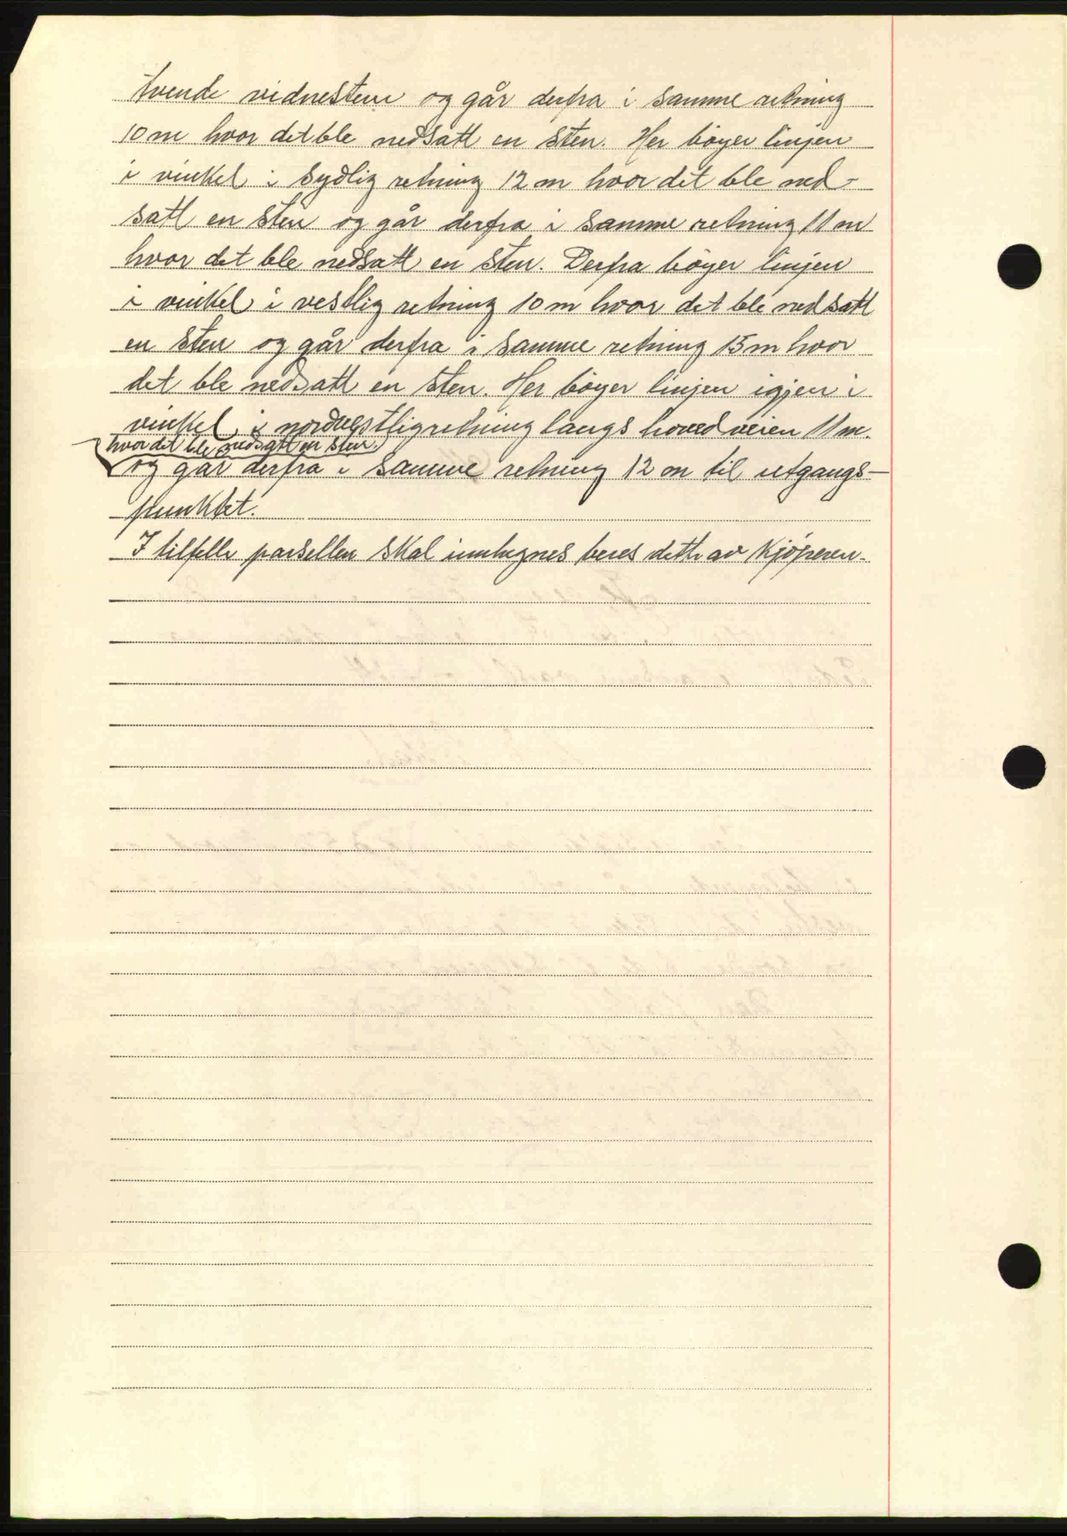 tvende vidnestene og går derfra i samme retning
10 m hvor det ble nedsatt en sten. Her bøyer linjen
i vinkel i sydlig retning 12 m hvor det ble ned-
satt en sten og går derfra i samme retning 11 m
hvor det ble nedsatt en sten. Derfra bøyer linjen
i vinkel i vestlig retning 10 m hvor det ble nedsatt
en sten og går derfra i samme retning 15 m hvor
det ble nedsatt en sten. Her bøyer linjen igjen i
vinkel i retning langs hovedveien 11 m.
hvor det ble nedsatt en sten.
og går derfra i samme retning 12 m til utgangs-
punktet.
I tilfelle parsellen skal innhegnes beres dette av kjøperen.